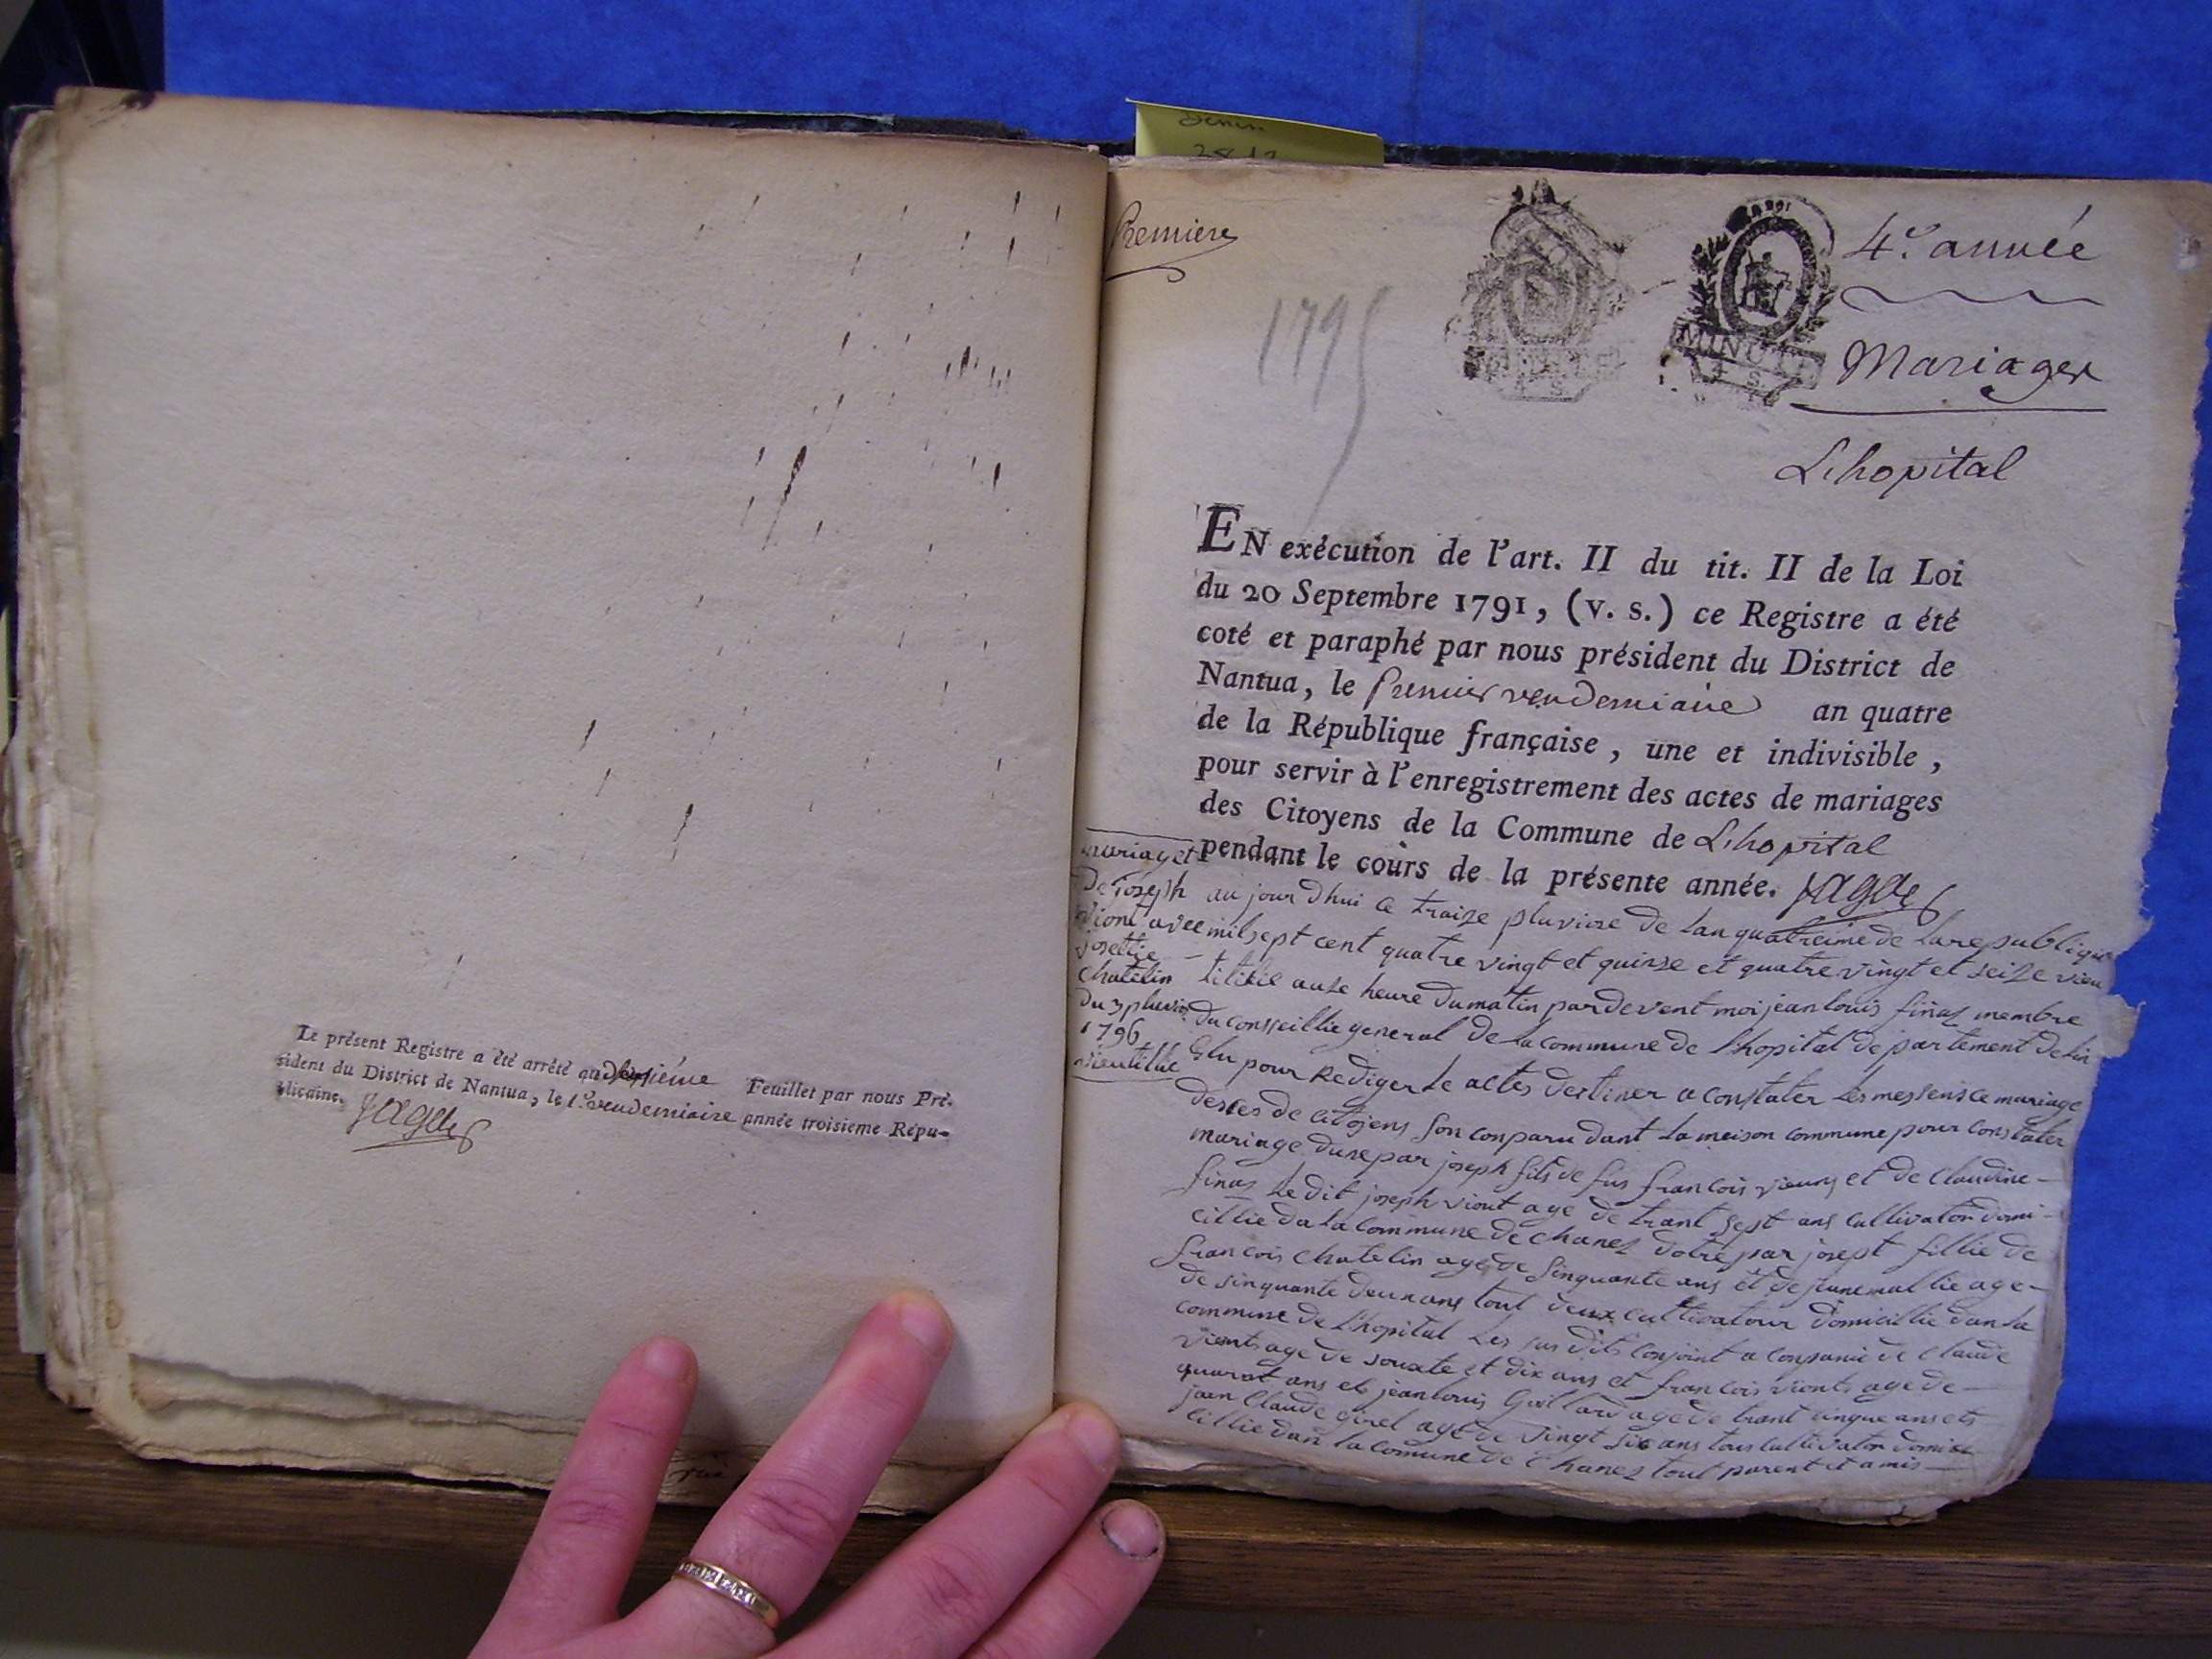 Le présent Registre a été arrêté au Feuillet par nous Pré-
sident du District de Nantua, le 1.er vendemiaire année troisieme Répu-
blicaine.
Denis
Premiere
1795
MINUTE
4 S.
4.e année
Mariages
Lhopital
EN exécution de l'art. II du tit. II de la Loi
du 20 Septembre 1791, (v. s.) ce Registre a été
coté et paraphé par nous président du District de
Nantua, le Premier vendemiaire an quatre
de la République française, une et indivisible,
pour servir à l'enregistrement des actes de mariages
des Citoyens de la Commune de Lhopital
pendant le cours de la présente année.
mariaget
De joseph
viont avec
josettie
chatelin
du 3 pluvio
1796
vieu titlie
au jour dhui le traize pluviose de lan quatreime de la republique
mil sept cent quatre vingt et quinze et quatre vingt et seize vieu
titilie auze heure du matin par devent moi jean louis finaz membre
du consseillie general de la commune de lhopital departement de lin
Elu pour Rediger le actes destiner a constater les messens ce mariage
desces de citojens son conparu dant la meison commune pour constater
mariage dune par joseph fils de fus francois vieunt et de claudine
finaz le dit joseph viont age de trant sept ans cultivator domi-
cillie da la commune de chanez dotre par josept fillie de
francois chatelin age de sinquante ans et de jeanne mallie age
de sinquante deux ans tout deux cultivatour domicillie dan la
commune de lhopital les sus dits conjoint a conpanie de claude
vionts age de souxate et dix ans et francois vionts age de
quarat ans et jean louis Guillard age de trant cinque ans et
jean claude girel age de vingt six ans tous cultivator domi
cillie dan la comune de chanez tout parent et amis